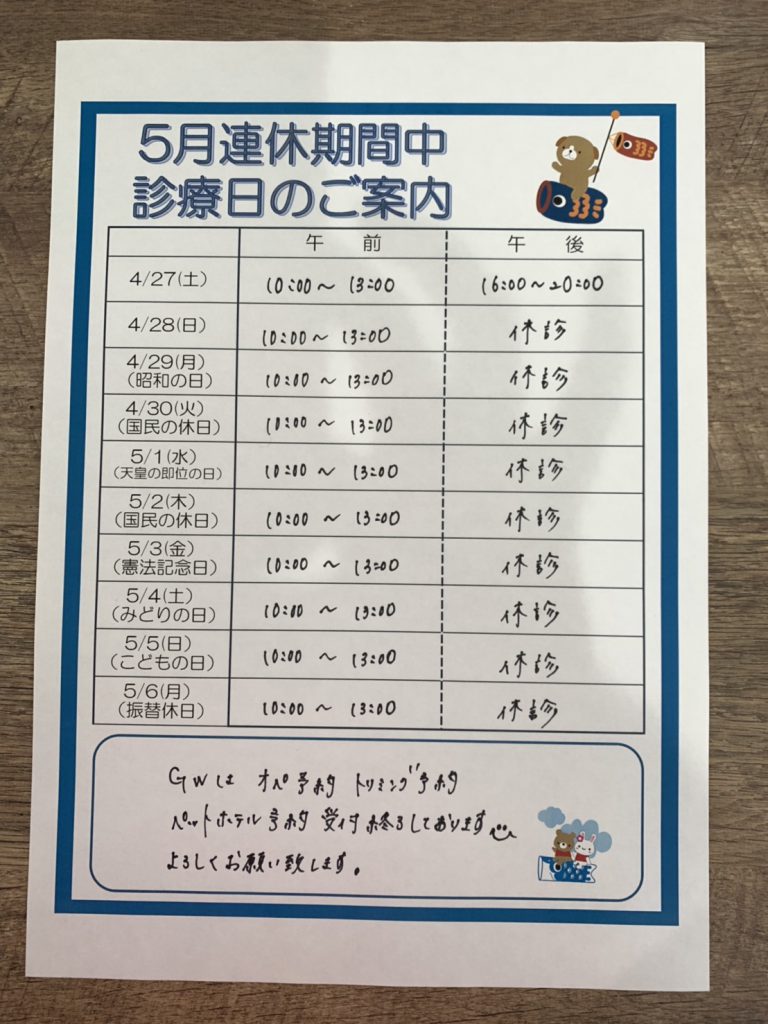 5月連休期間中
診療日のご案内
午前 午後
4/27(土) 10:00〜13:00 16:00〜20:00
4/28(日) 10:00〜13:00 休診
4/29(月)
(昭和の日) 10:00〜13:00 休診
4/30(火)
(国民の休日) 10:00〜13:00 休診
5/1(水)
(天皇の即位の日) 10:00〜13:00 休診
5/2(木)
(国民の休日) 10:00〜13:00 休診
5/3(金)
(憲法記念日) 10:00〜13:00 休診
5/4(土)
(みどりの日) 10:00〜13:00 休診
5/5(日)
(こどもの日) 10:00〜13:00 休診
5/6(月)
(振替休日) 10:00〜13:00 休診
GWは オペ予約 トリミング予約
ペットホテル予約 受付終了しております
よろしくお願い致します。